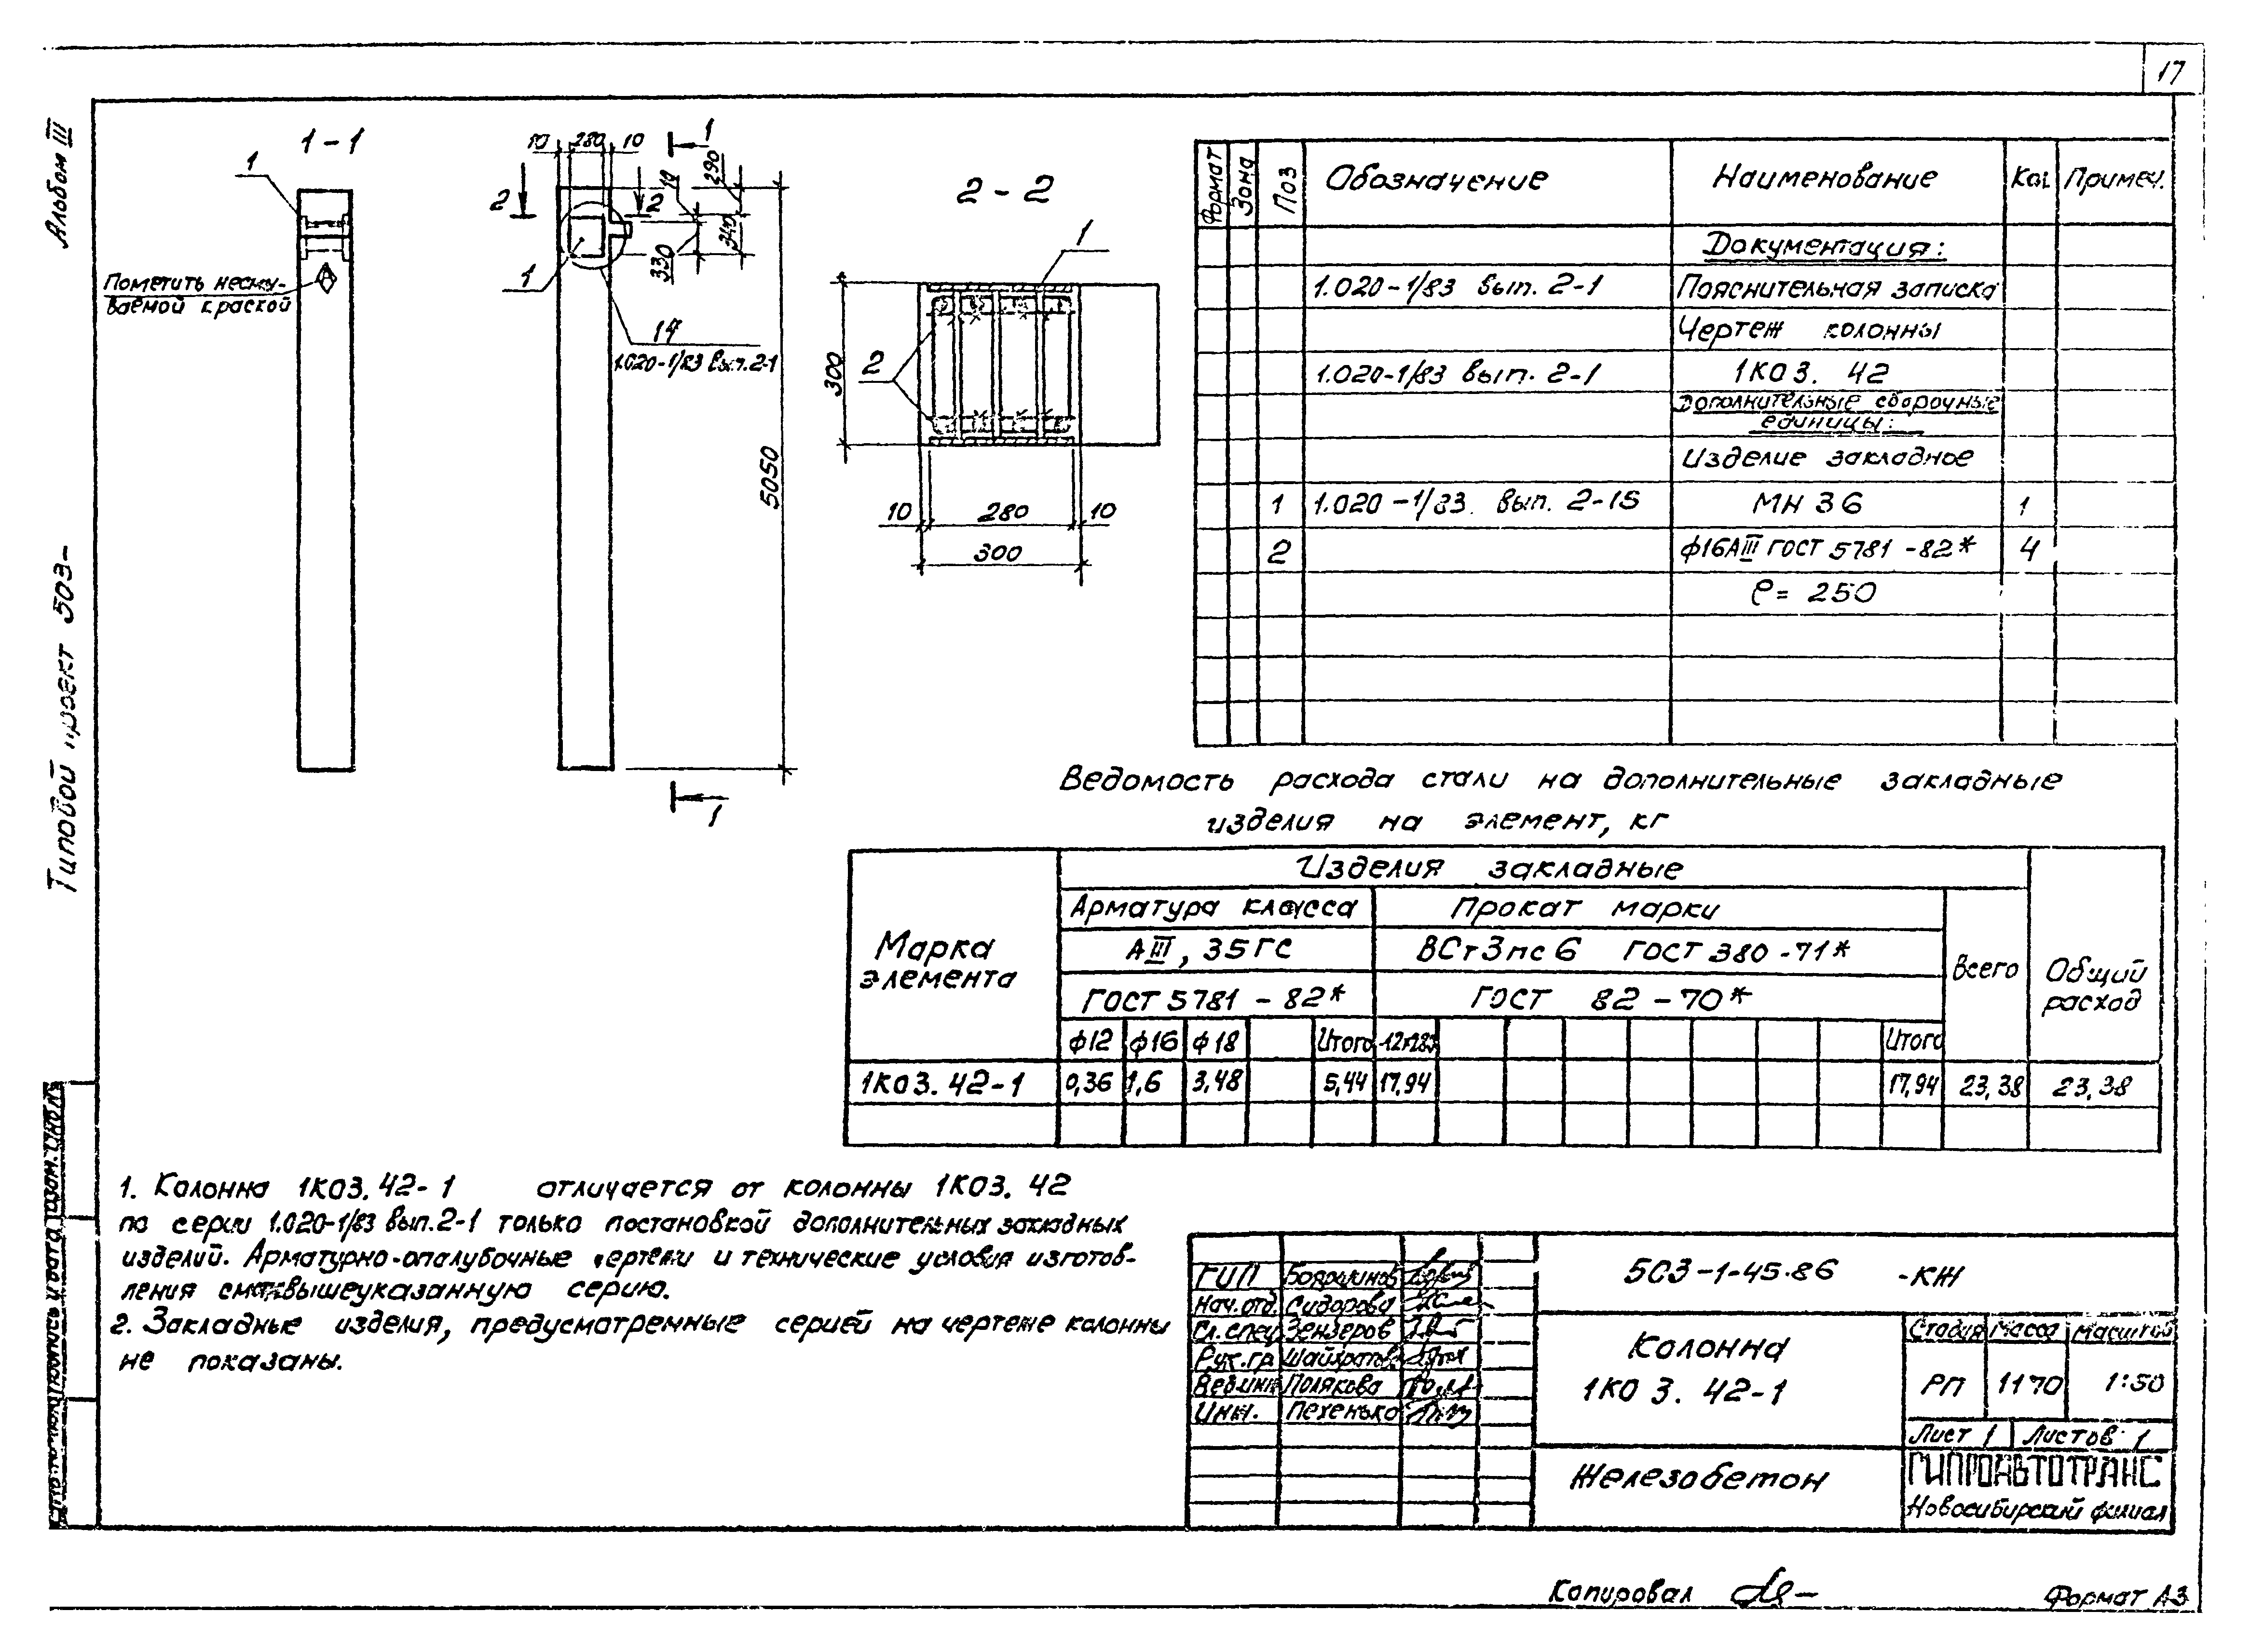 17
Альбом III
Типовой проект 503-
1-1
1
Пометить несмы-
ваемой краской
10 280 10
1
2 2
10 290
330 340
1
14
1.020-1/83 вып.2-1
5050
1
2-2
1
2
300
10 280 10
300
Формат Зона Поз Обозначение Наименование Кол Примеч.
Документация:
1.020-1/83 вып. 2-1 Пояснительная записка
Чертеж колонны
1.020-1/83 вып. 2-1 1К03. 42
Дополнительные сборочные
единицы:
Изделие закладное
1 1.020-1/83 вып. 2-15 МН 36 1
2 ф16АIII ГОСТ 5781-82* 4
ℓ= 250
Ведомость расхода стали на дополнительные закладные
изделия на элемент, кг
Марка
элемента
Изделия закладные
Арматура класса Прокат марки
АIII, 35ГС ВСт3пс6 ГОСТ 380-71*
ГОСТ 5781-82* ГОСТ 82-70*
Всего
Общий
расход
ф12 ф16 ф18 Итого Итого
1К03.42-1 0,36 1,6 3,48 5,44 17,94 17,94 23,38 23,38
1. Колонна 1К03.42-1 отличается от колонны 1К03. 42
по серии 1.020-1/83 вып.2-1 только постановкой дополнительных закладных
изделий. Арматурно-опалубочные чертежи и технические условия изготов-
ления вышеуказанную серию.
2. Закладные изделия, предусмотренные серией на чертеже колонны
не показаны.
ГИП
Нач.отд. Сидорова
Гл.спец Зензеров
Рук.гр.
Вед.инж Полякова
Инж. Пехенько
503-1-45.86 -КЖ
Колонна
1К0 3. 42-1
Стадия Масса Масштаб
РП 1170 1:50
Лист 1 Листов 1
Железобетон
ГИПРОАВТОТРАНС
Новосибирский филиал
Копировал
Формат А3